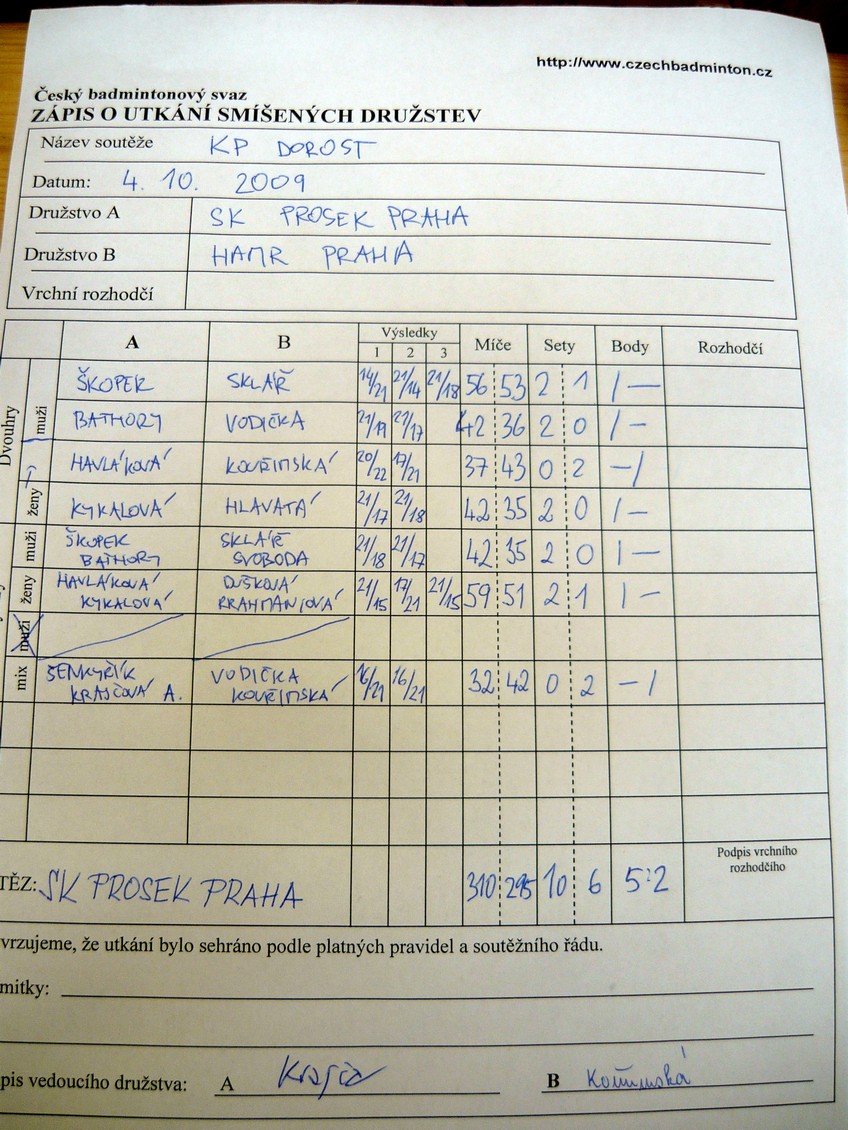 http://www.czechbadminton.cz
Český badmintonový svaz
ZÁPIS O UTKÁNÍ SMÍŠENÝCH DRUŽSTEV
Název soutěže KP DOROST
Datum: 4. 10. 2009
Družstvo A SK PROSEK PRAHA
Družstvo B HAMR PRAHA
Vrchní rozhodčí
A B Výsledky Míče Sety Body Rozhodčí
1 2 3
Dvouhry
muži
ŠKOPEK SKLÁŘ 14/21 21/14 21/18 56 53 2 1 1 —
BATHORY VODIČKA 21/19 21/17 42 36 2 0 1 -
HAVLÁKOVÁ KOUŘIMSKÁ 20/22 17/21 37 43 0 2 - 1
ženy KYKALOVÁ HLAVATÁ 21/17 21/18 42 35 2 0 1 —
muži ŠKOPEK BATHORY SKLÁŘ SVOBODA 21/18 21/17 42 35 2 0 1 —
ženy HAVLÁKOVÁ KYKALOVÁ DUŠKOVÁ RRAHMANIOVÁ 21/15 17/21 21/15 59 51 2 1 1 —
muži
mix ŠENKYŘÍK KRAJČOVÁ A. VODIČKA KOUŘIMSKÁ 16/21 16/21 32 42 0 2 - 1
Podpis vrchního
rozhodčího
TĚZ: SK PROSEK PRAHA 310 295 10 6 5:2
vrzujeme, že utkání bylo sehráno podle platných pravidel a soutěžního řádu.
mitky:
pis vedoucího družstva: A B Kouřimská